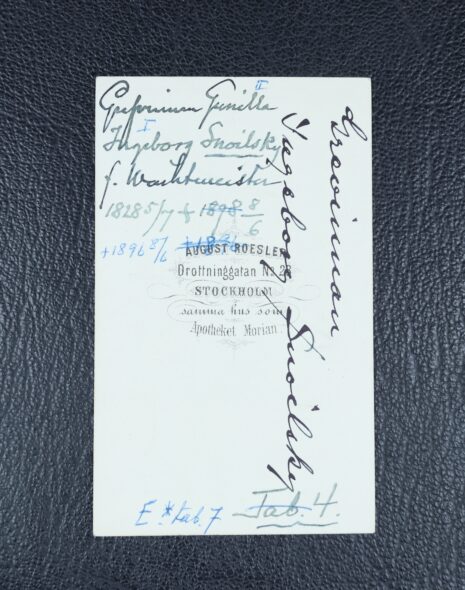 II
Grefvinnan Gunilla
I
Ingeborg Snoilsky
f. Wachtmeister
1828 5/7 † 1898 8/6
+1896 8/6
AUGUST ROESLER
Drottninggatan No 28
STOCKHOLM
samma hus som
Apotheket Morian.
Grevinnan
Ingeborg Snoilsky
E.* tab. 7
Tab. 4.